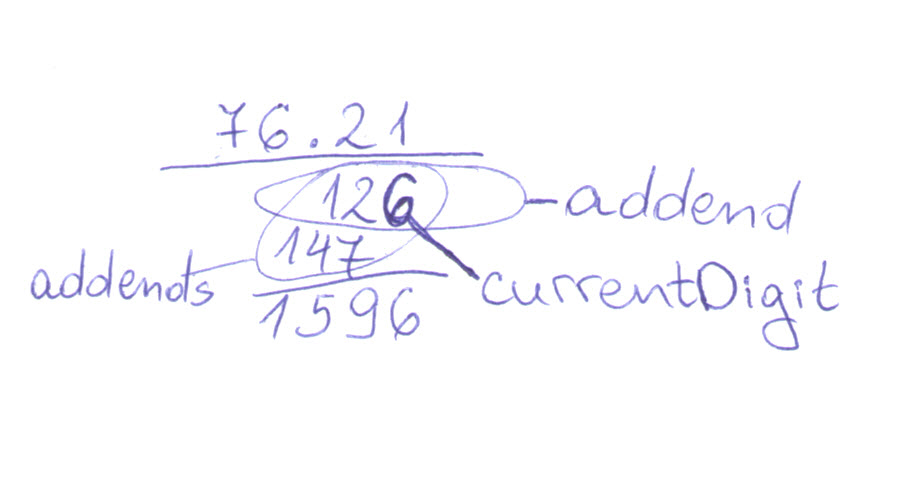 76.21
126 addend
147
addends currentDigit
1596